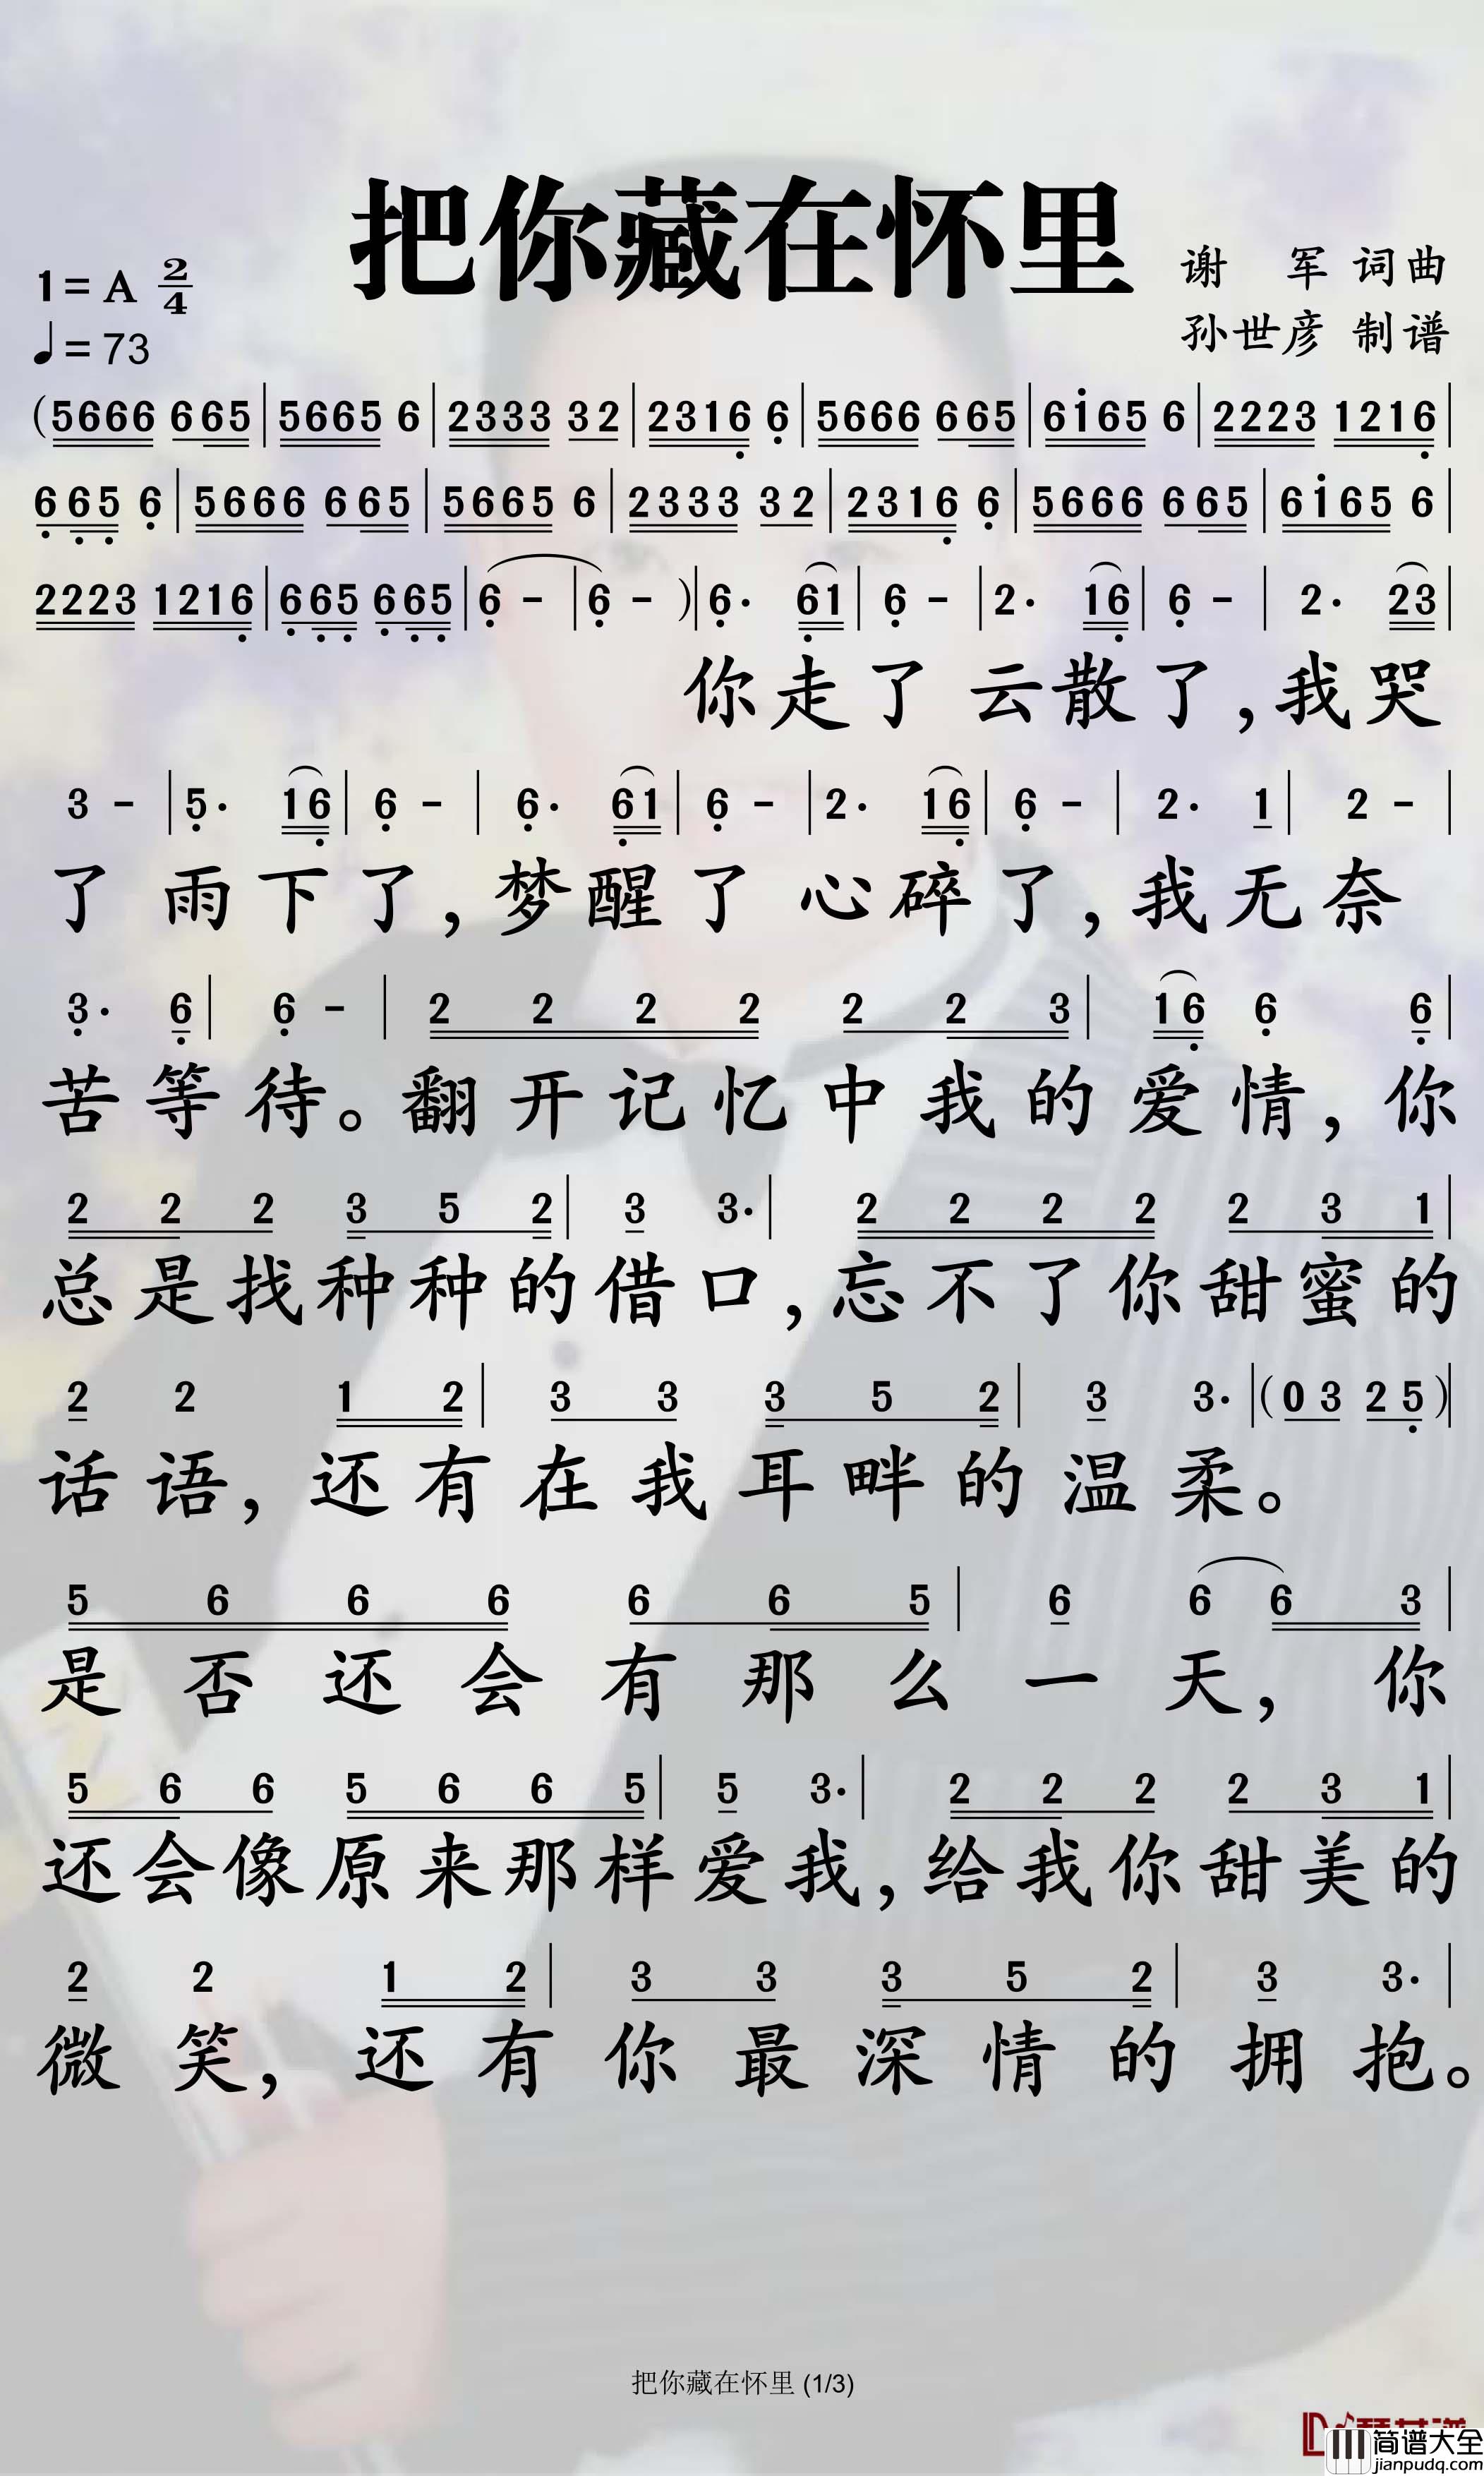 把你藏在怀里
1=A 2/4
谢 军 词曲
♩=73
孙世彦 制谱
(5666 665|5665 6|2333 32|2316 6|5666 665|6i65 6|2223 1216|
665 6|5666 665|5665 6|2333 32|2316 6|5666 665|6i65 6
2223 1216|665 665|6 -|6 - )|6· 61|6 -|2· 16|6 -|2· 23|
你走了 云散了,我哭
3 -|5· 16|6 -|6· 61|6 -|2· 16|6 -|2· 1|2 -|
了 雨下了,梦醒了 心碎了,我无奈
3· 6|6 -|2 2 2 2 2 2 3|16 6 6|
苦等待。翻开记忆中我的爱情,你
2 2 2 3 5 2|3 3·|2 2 2 2 2 3 1|
总是找种种的借口,忘不了你甜蜜的
2 2 1 2|3 3 3 5 2|3 3·|(0 3 2 5)|
话语,还有在我耳畔的温柔。
5 6 6 6 6 6 5|6 6 6 3|
是否还会有那么一天,你
5 6 6 5 6 6 5|5 3·|2 2 2 2 3 1|
还会像原来那样爱我,给我你甜美的
2 2 1 2|3 3 3 5 2|3 3·|
微笑,还有你最深情的拥抱。
把你藏在怀里 (1/3)
简谱大全
jianpudq.com